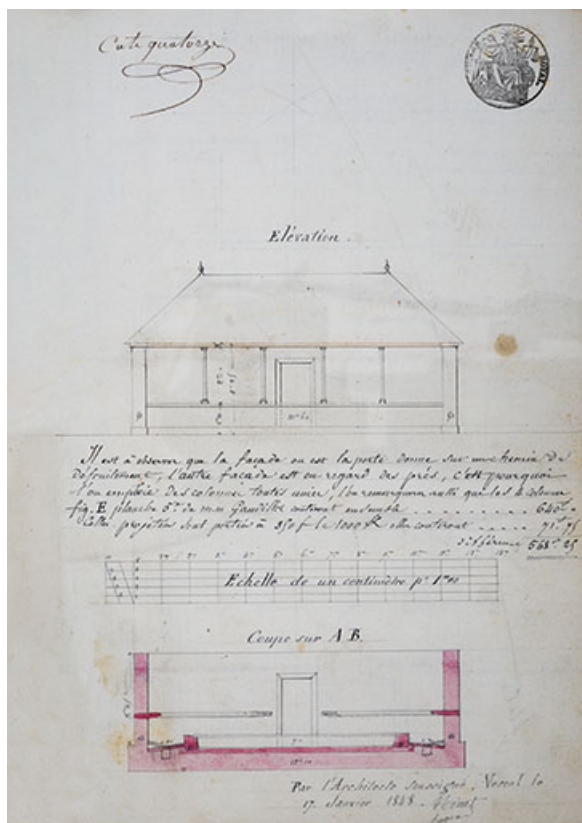 Cote quatorze
ROYAL
Elévation.
Il est à observer que la façade ou est la porte donne sur un chemin de
Défruitement, l'autre façade est en regard des prés, c'est pourquoi
l'on emploie des colonnes toutes unies, l'on remarquera aussi que les 8 colonnes
fig. E planche 5e de m.m Gaudillot coûtent ensemble 640f "
Celles projetées sont portées à 350f le 1000k elles coûteront 71f 75
différence 568f 25
Echelle de un centimètre pr 1m00
Coupe sur A B.
Par l'Architecte soussigné, Vesoul le
17 Janvier 1848.